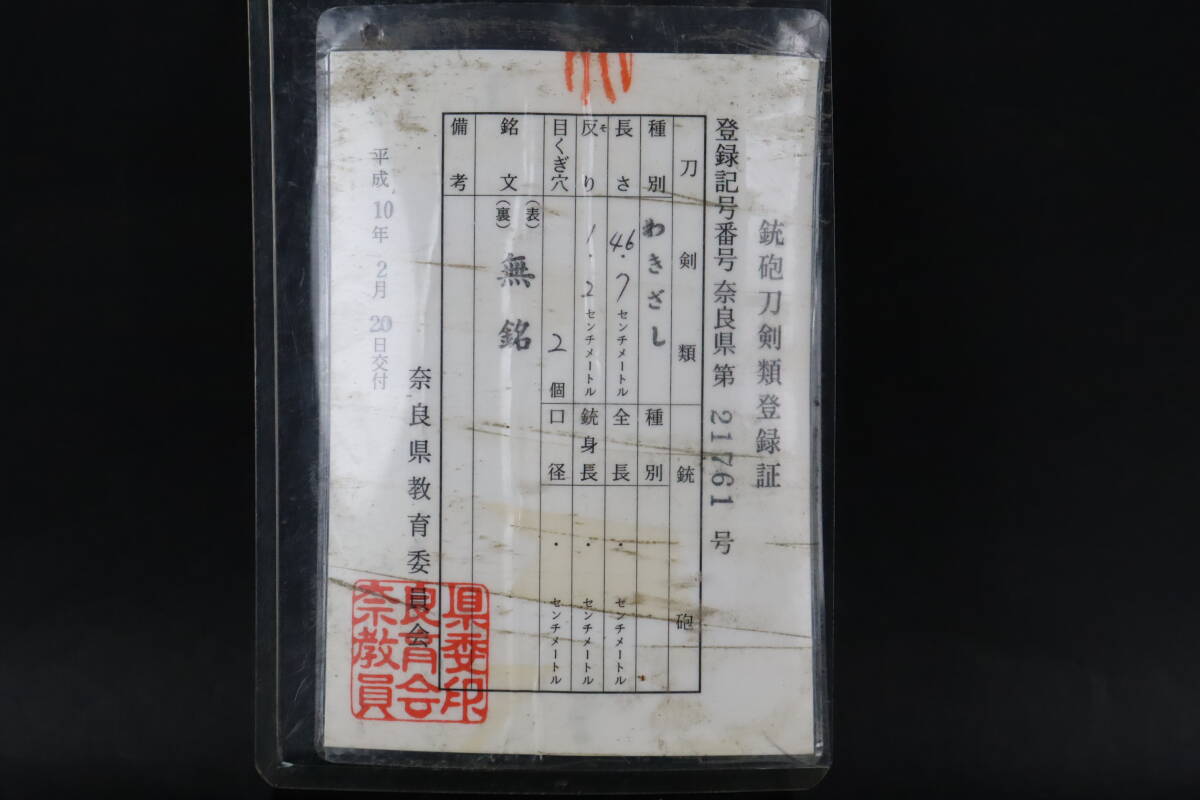 銃砲刀剣類登録証
登録記号番号 奈良県 第 21761 号
刀剣類
銃砲
種別 わきざし
種別
長さ 46.7 センチメートル
全長 . センチメートル
反り そ 1.2 センチメートル
銃身長 . センチメートル
目くぎ穴 2 個
口径 . センチメートル
銘文 (表)
(裏) 無銘
備考
奈良県教育委員会
平成 10年 2月 20日交付
県委印
良育会
奈教員